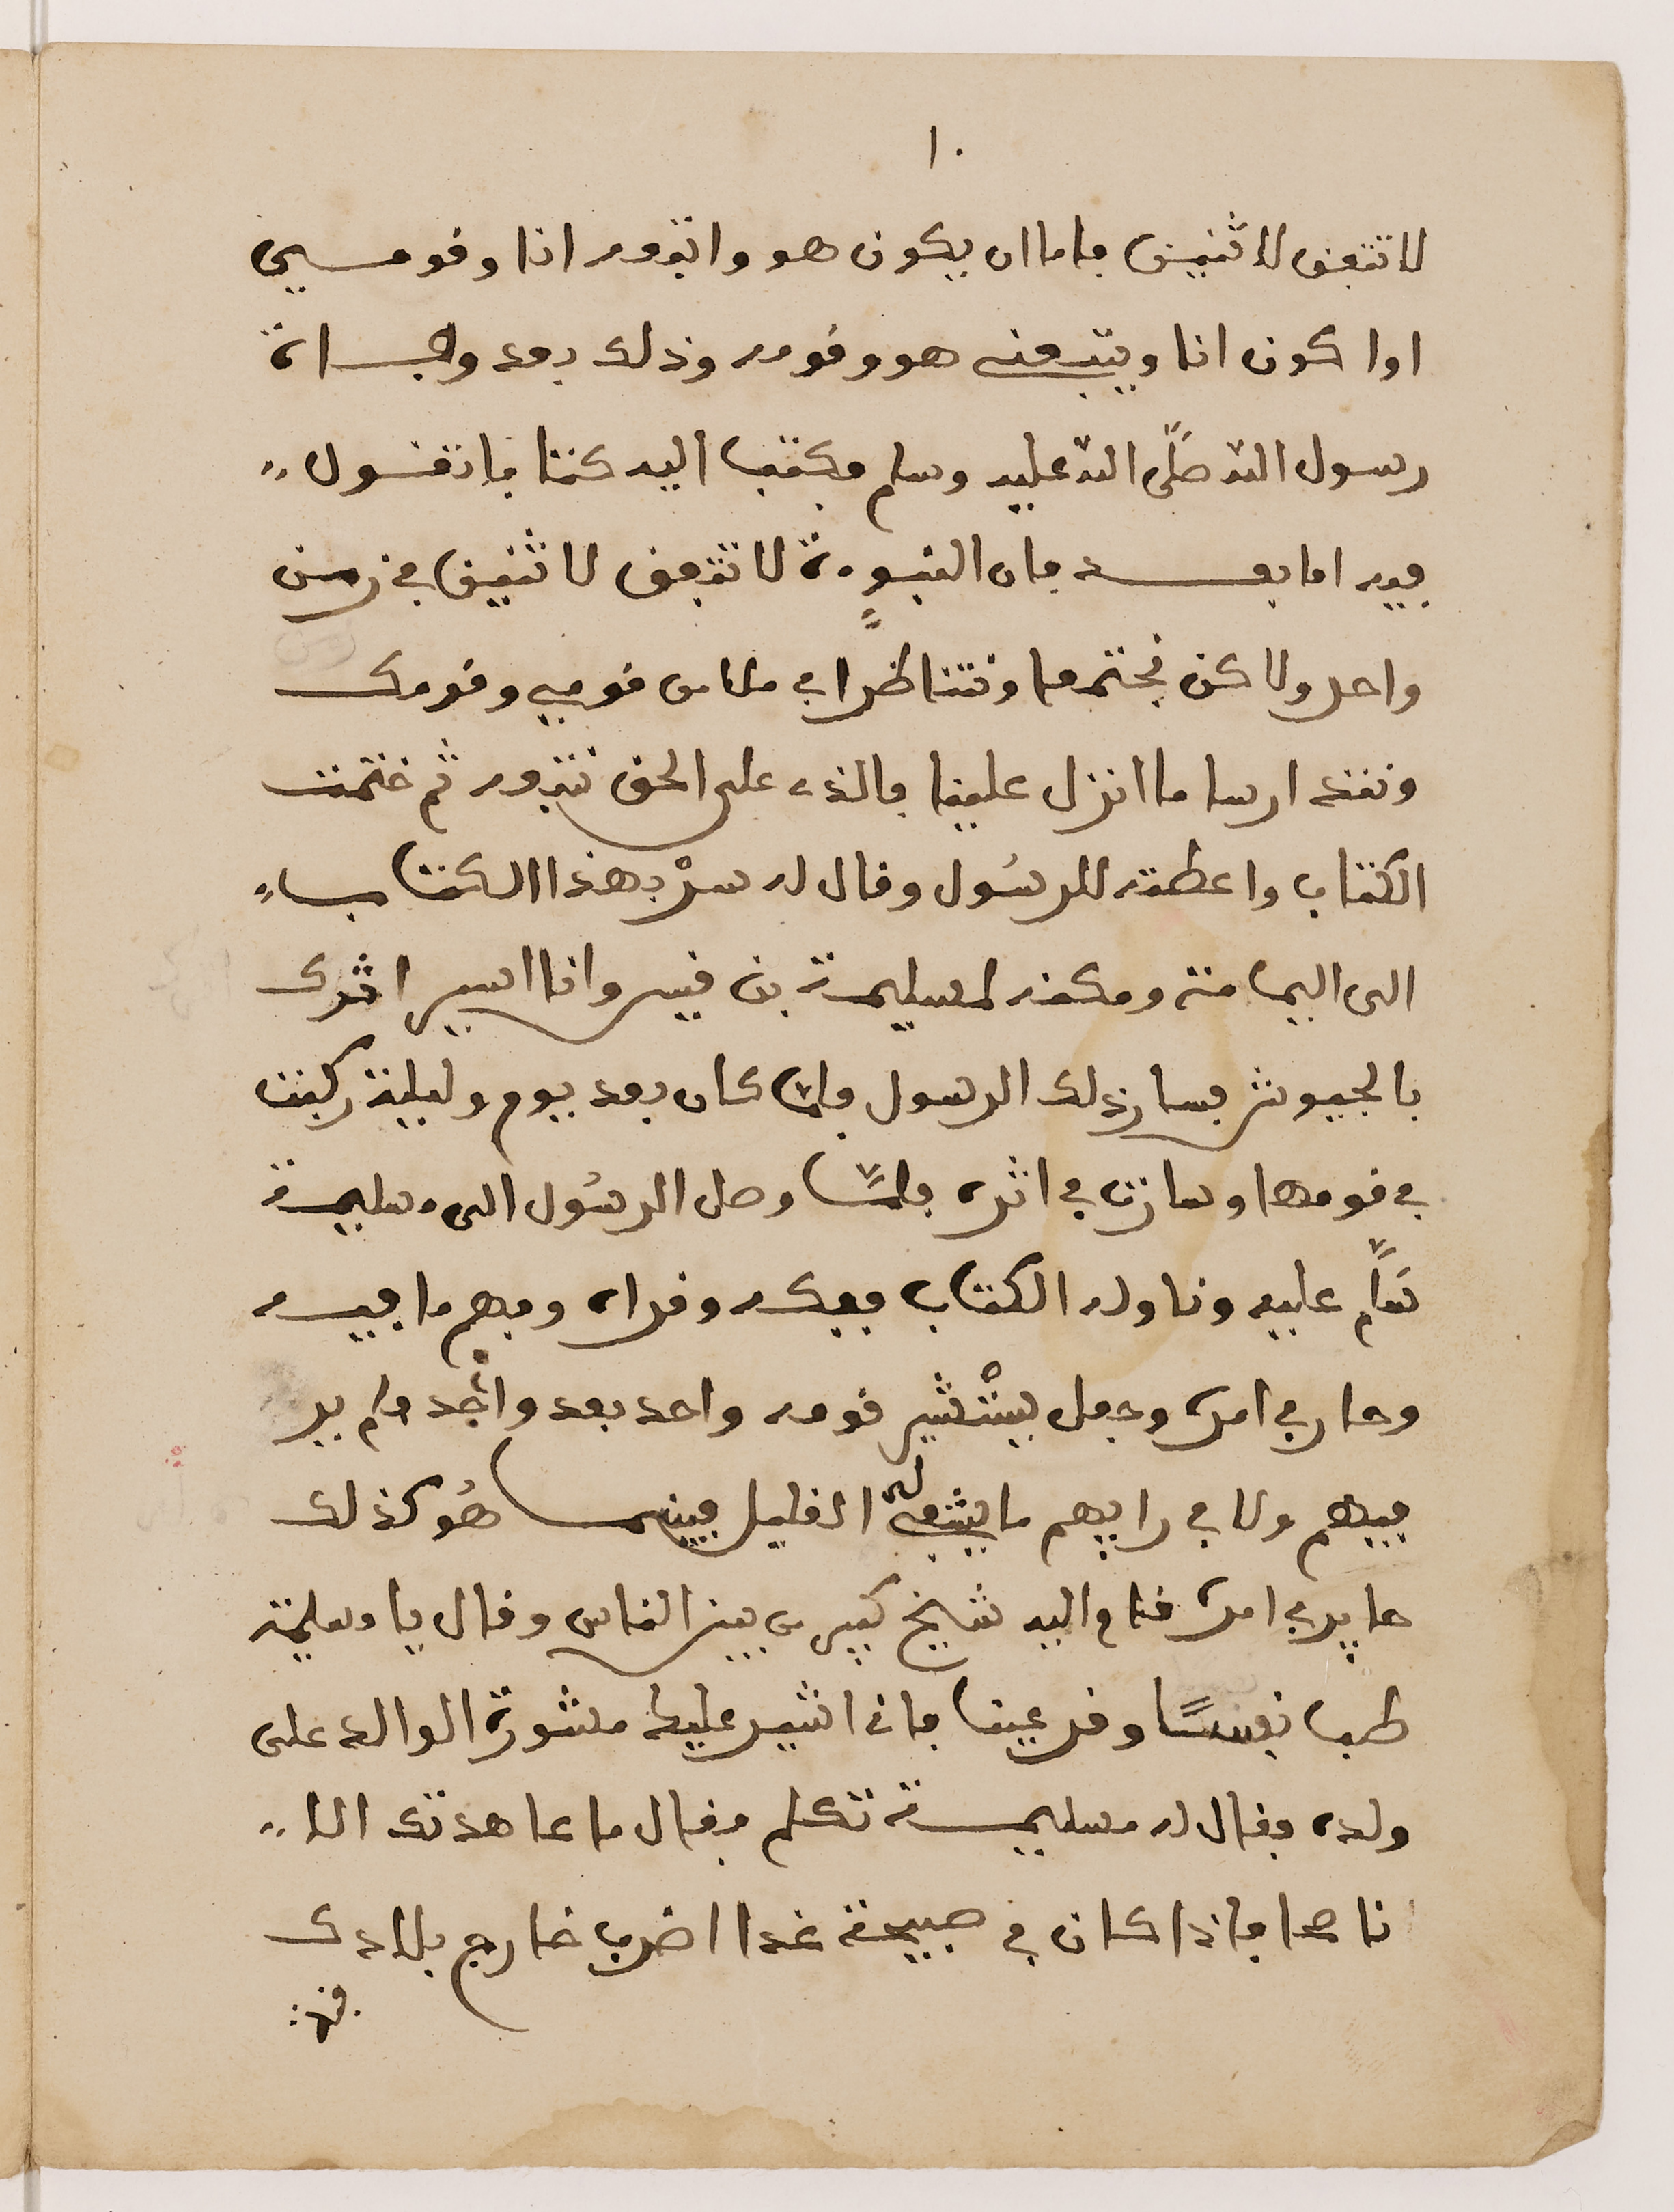 ١٠
لا تتفق لاثنين فاما ان يكون هو واتبعه انا وقومي
او اكون انا ويتبعني هو وقومه وذلك بعد وفاة
رسول الله صلّى الله عليه وسلم فكتب اليه كتابا تقول
فيه اما بعد فان النبوءة لا تتفق لاثنين في زمن
واحد ولاكن نجتمعا ونتناظرا في ملا من قومي وقومك
ونتدارسا ما انزل علينا فالذي على الحق نتبعه ثم ختمت
الكتاب واعطته للرسُول وقال له سرْ بهذا الكتاب
الى اليمامة ومكنه لمسليمة بن قيس وانا اسير اثرك
بالجيوش فسار ذلك الرسول فلما كان بعد يوم وليلة ركبت
في قومها وسارت في اثره فلمّا وصل الرسُول الى مسليمة
سَلّم عليه وناوله الكتاب ففكه وقراه وفهم ما فيه
وحار في امره وجعل يسْتشير قومه واحد بعد واحد ولم ير
فيهم ولا في رايهم ما يشفي له الغليل فبينما هُو كذلك
حاير في امره قام اليه شيخ كبير من بين الناس وقال يا مسليمة
طب نفسًا وقر عينا فاني اشير عليك مشورة الوالد على
ولده فقال له مسليمة تكلم فقال ما عاهدتك الا
ناصحا فاذا كان في صبيحة غدا اضرب خارج بلادك
قبة